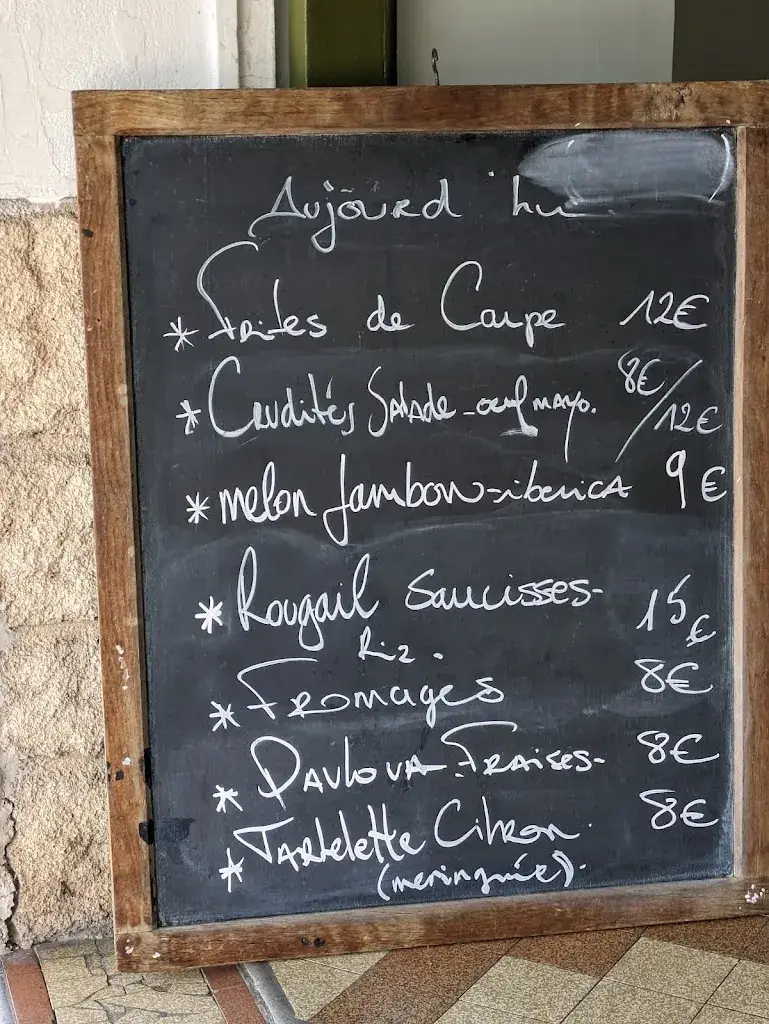 Aujourd'hu
* Frites de Carpe 12€
* Crudités Salade - oeuf mayo. 8€/12€
* melon jambon - iberica 9€
* Rougail saucisses - 15€
Riz.
* Fromages 8€
* Pavlova - Fraises - 8€
* Tartelette Citron. 8€
(meringuée).